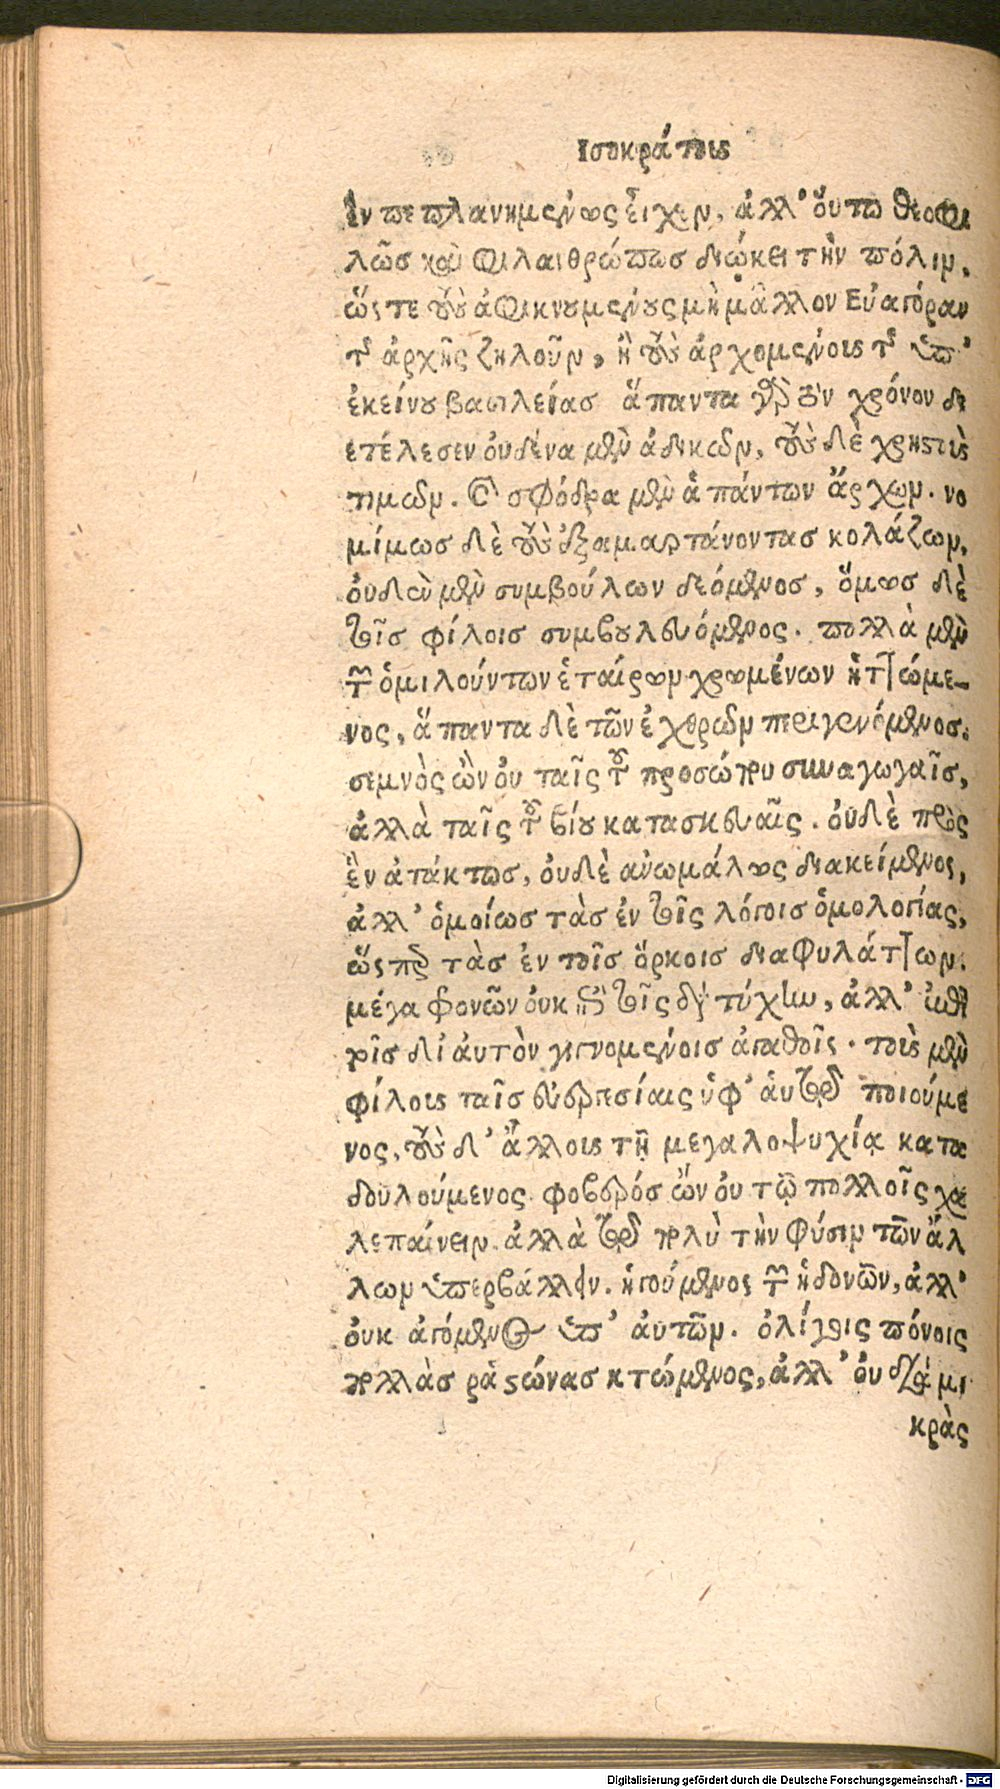 Ισοκράτους
ιν πεπλανημένως εἶχεν, ἀλλ' οὕτω θεοφι
λῶσ καὶ φιλανθρώπωσ διώκει τὴν πόλιν,
ὥστε τοὺσ ἀφικνουμένους μὴ μᾶλλον Εὐαγόραν
τῆς ἀρχῆς ζηλοῦν, ἢ τοὺσ ἀρχομένους τῆς ὑπ'
ἐκείνου βασιλείασ ἅπαντα γὰρ τὸν χρόνον δι
ετέλεσεν οὐδένα μὲν ἀδικῶν, τοὺσ δὲ χρηστοὺς
τιμῶν. καὶ σφόδρα μὲν ἁπάντων ἄρχων. νο
μίμωσ δὲ τοὺσ ἐξαμαρτάνοντασ κολάζων,
οὐδὲν μὲν συμβούλων δεόμενοσ, ὅμωσ δὲ
τοῖσ φίλοισ συμβουλευόμενος. πολλὰ μὲν
τῶν ὁμιλούντων ἑταίρων χρωμένων ἡττώμε-
νος, ἅπαντα δὲ τῶν ἐχθρῶν περιγενόμενοσ.
σεμνὸς ὢν οὐ ταῖς τοῦ προσώπου συναγωγαῖσ,
ἀλλὰ ταῖς τοῦ βίου κατασκευαῖς. οὐδὲ πρὸς
ἓν ἀτάκτωσ, οὐδὲ ανωμάλως διακείμενος,
ἀλλ' ὁμοίωσ τὰσ ἐν τοῖς λόγοισ ὁμολογίας,
ὥςπερ τὰσ ἐν τοῖσ ὅρκοισ διαφυλάττων.
μέγα φρονῶν οὐκ ἐπὶ τοῖς διὰ τύχην, ἀλλ' ἐπὶ
τοῖσ δι' ἀυτὸν γιγνομένοισ ἀγαθοῖς. τοὺς μὲν
φίλους ταῖσ εὐεργεσίαις ὑφ' ἁυτῷ ποιούμε
νος, τοὺσ δ' ἄλλους τῇ μεγαλοψυχίᾳ κατα
δουλούμενος φοβερόσ ὢν οὐ τῷ πολλοῖς χα
λεπαίνειν. ἀλλὰ τῷ πολὺ τὴν φύσιν τῶν ἄλ
λων ὑπερβάλλειν. ἡγούμενος τῶν ἡδονῶν, ἀλλ'
οὐκ ἀγόμενος ὑπ' ἀυτῶν. ὀλίγοις πόνοις
πολλὰσ ῥαστώνασ κτώμενος, ἀλλ' οὐ διὰ μι
κρὰς
Digitalisierung gefördert durch die Deutsche Forschungsgemeinschaft - DFG